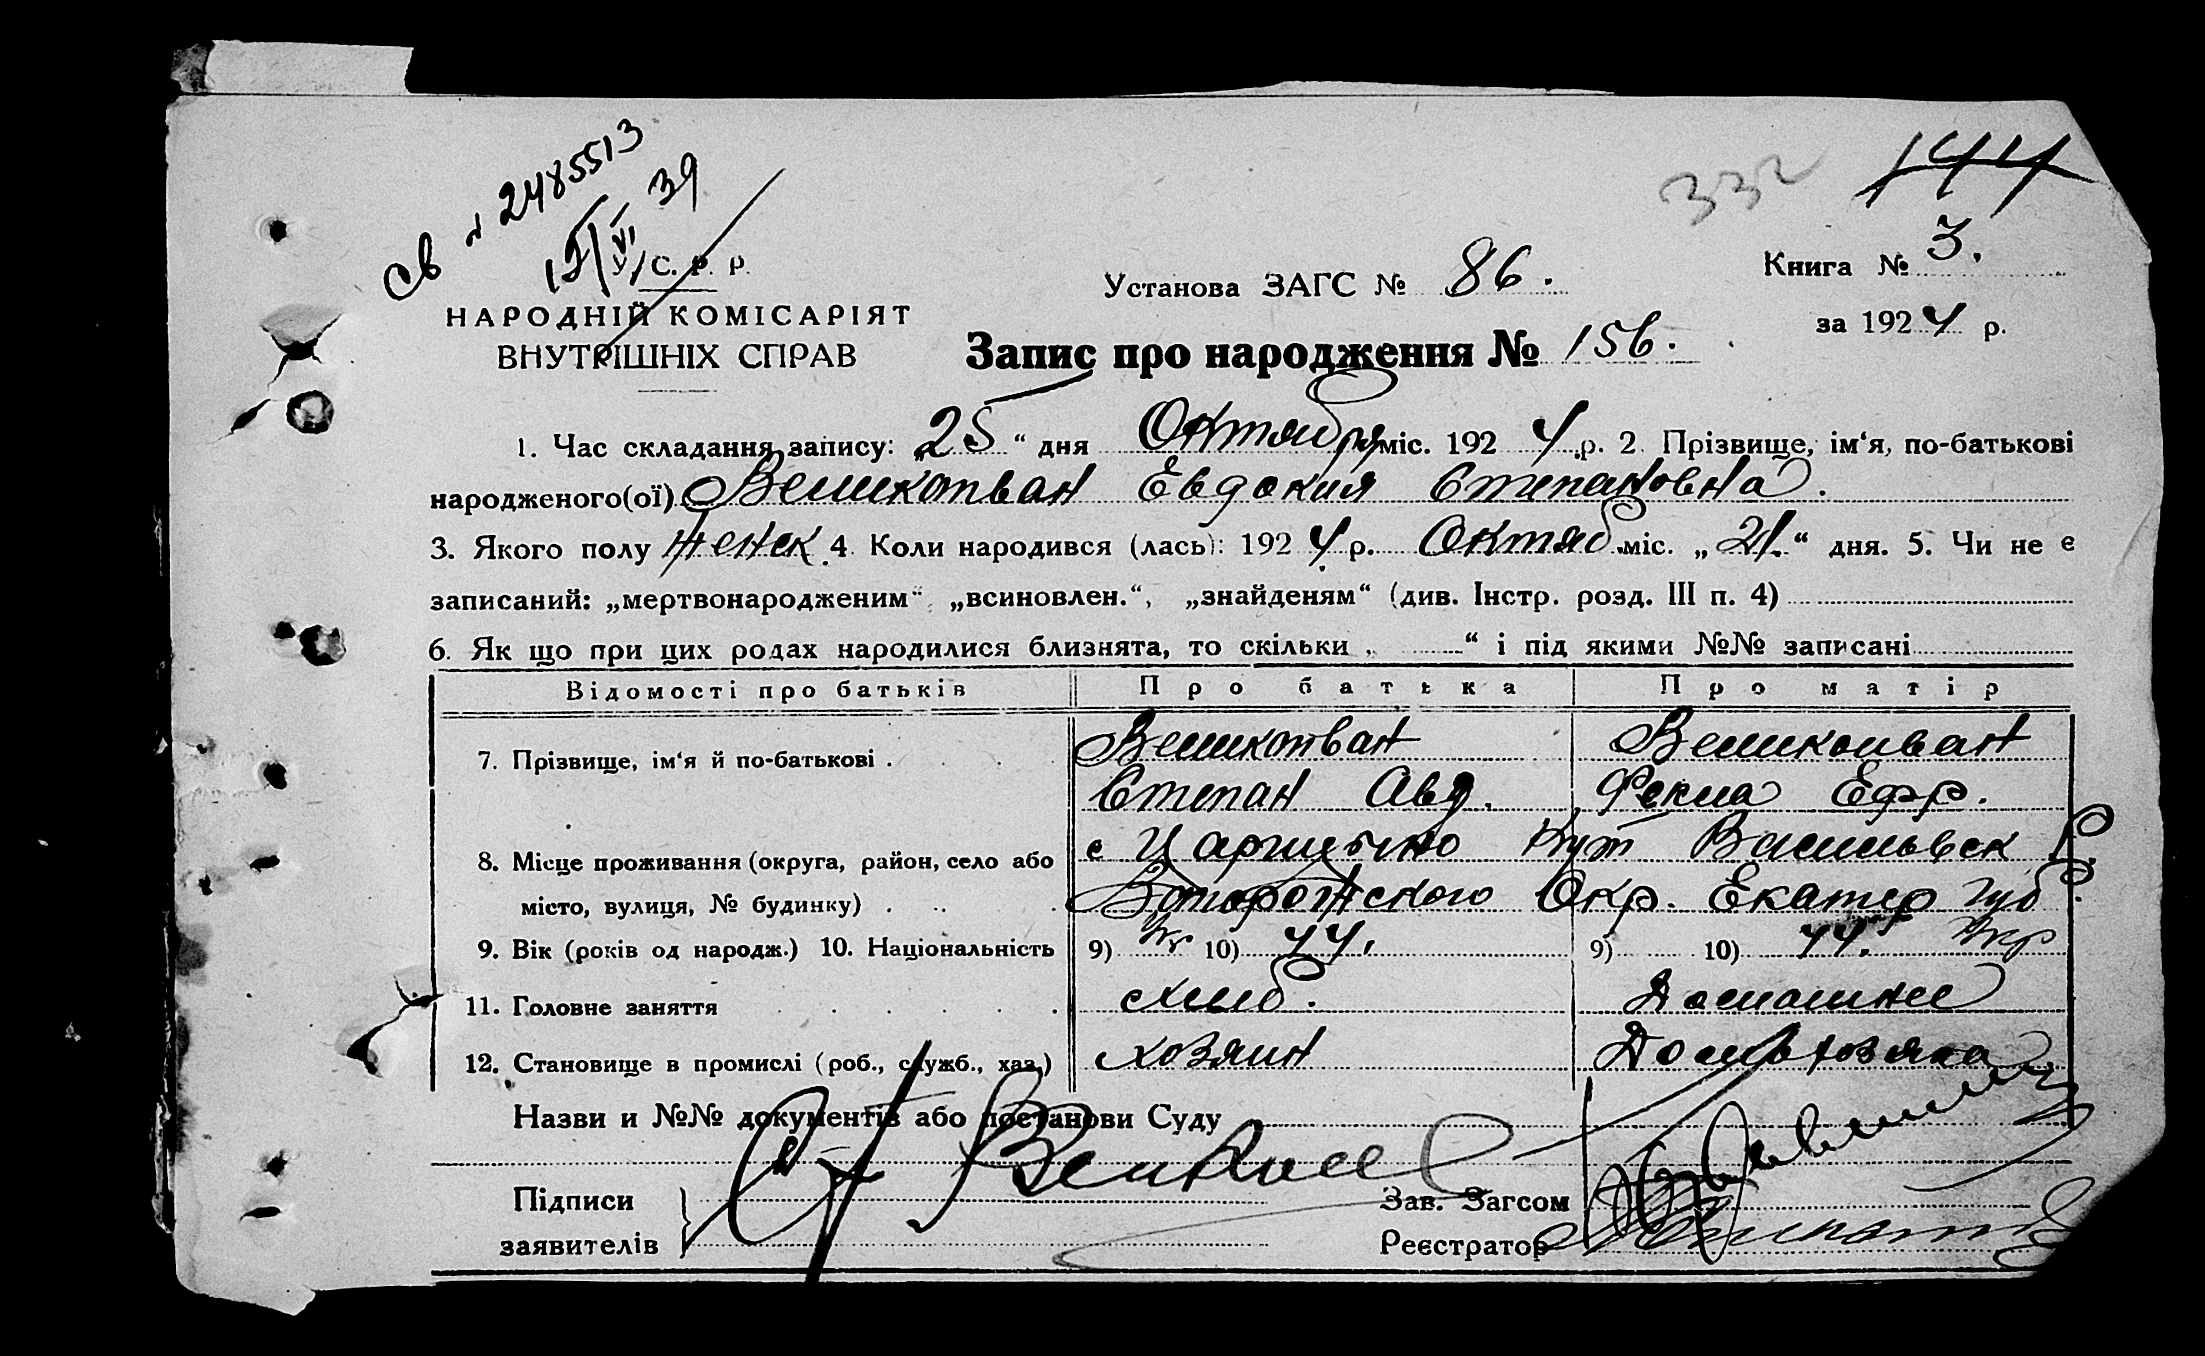 св № 2485513
15/VI 39
332
144
У. С. Р. Р.
НАРОДНІЙ КОМІСАРІЯТ
ВНУТРІШНІХ СПРАВ
Установа ЗАГС № 86.
Книга № 3.
за 1924 р.
Запис про народження № 156.
1. Час складання запису: „25“ дня Октября міс. 1924 р. 2. Прізвище, ім‘я, по-батькові
народженого(ої) Великоиван Евдокия Степановна.
3. Якого полу женск. 4. Коли народився (лась): 1924 р. Октяб. міс. „21.“ дня. 5. Чи не є
записаний: „мертвонародженим“, „всиновлен.“, „знайденям“ (див. Інстр. розд. III п. 4)
6. Як що при цих родах народилися близнята, то скільки „ “ і під якими №№ записані
Відомості про батьків Про батька Про матір
7. Прізвище, ім‘я й по-батькові . Великоиван Великоиван
Степан Авд. Фекла Ефр.
8. Місце проживання (округа, район, село або с Царицыно Кут Васильевск Р.
місто, вулиця, № будинку) . Запорожского Окр. Екатер губ.
9. Вік (років од народж.) 10. Національність 9) Укр 10) 44. 9) 10) 44. Укр
11. Головне заняття хлеб. Домашнее
12. Становище в промислі (роб., служб., хаз.) хозяин Домохозяка
Назви и №№ документів або постанови Суду
Підписи
заявителів
Зав. Загсом
Реєстратор